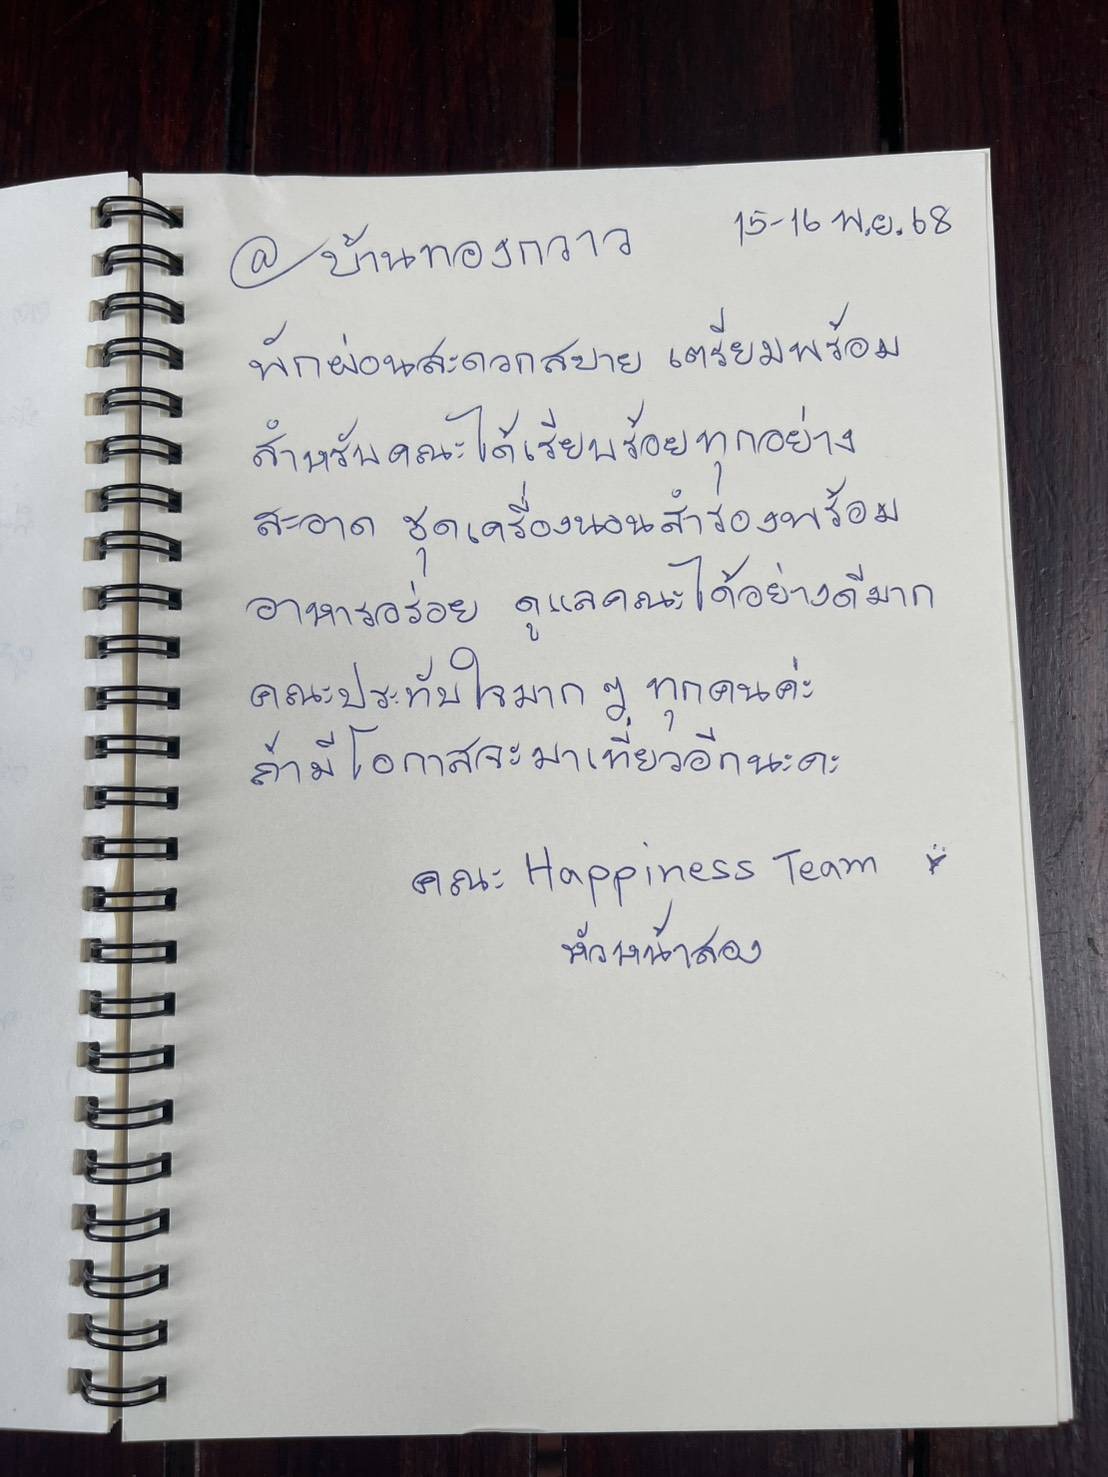 15-16 พ.ย. 68
@บ้านทองกวาว
พักผ่อนสะดวกสบาย เตรียมพร้อม
สำหรับคณะได้เรียบร้อยทุกอย่าง
สะอาด ชุดเครื่องนอนสำรองพร้อม
อาหารอร่อย ดูแลคณะได้อย่างดีมาก
คณะประทับใจมาก ๆ ทุกคนค่ะ
ถ้ามีโอกาสจะมาเที่ยวอีกนะคะ
คณะ Happiness Team
หัวหน้าสอง